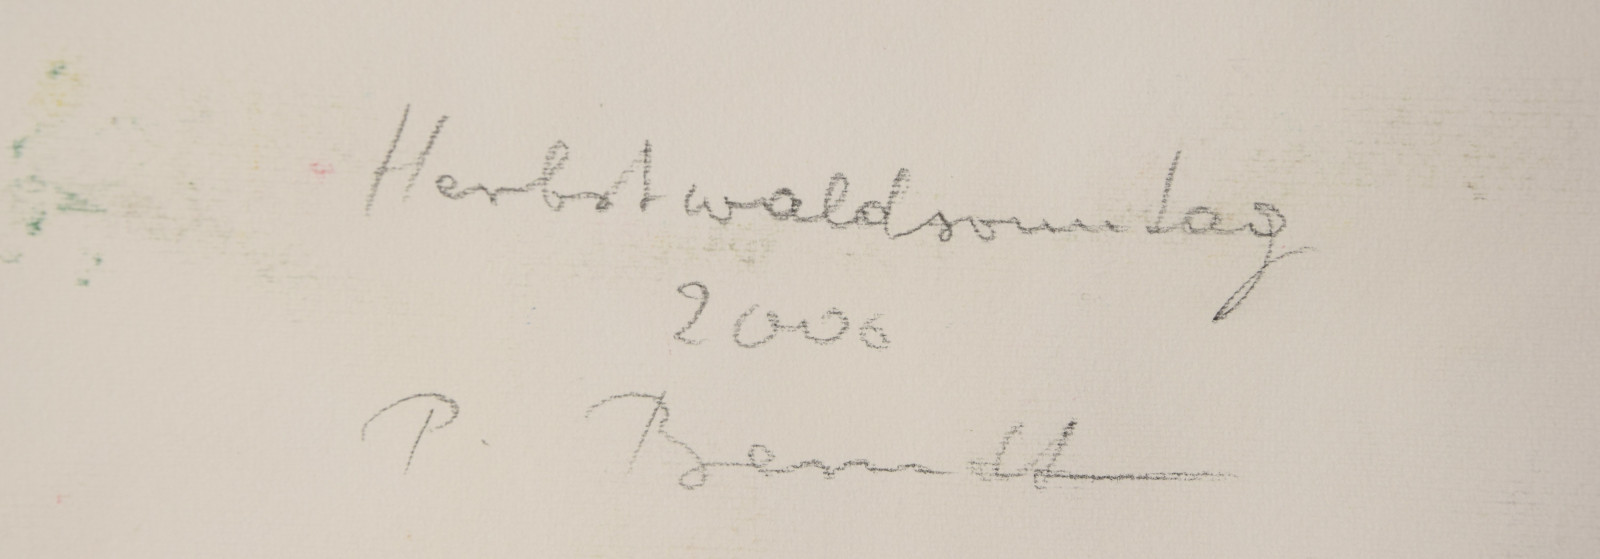 Herbstwaldsonntag
2006
P. Berndt